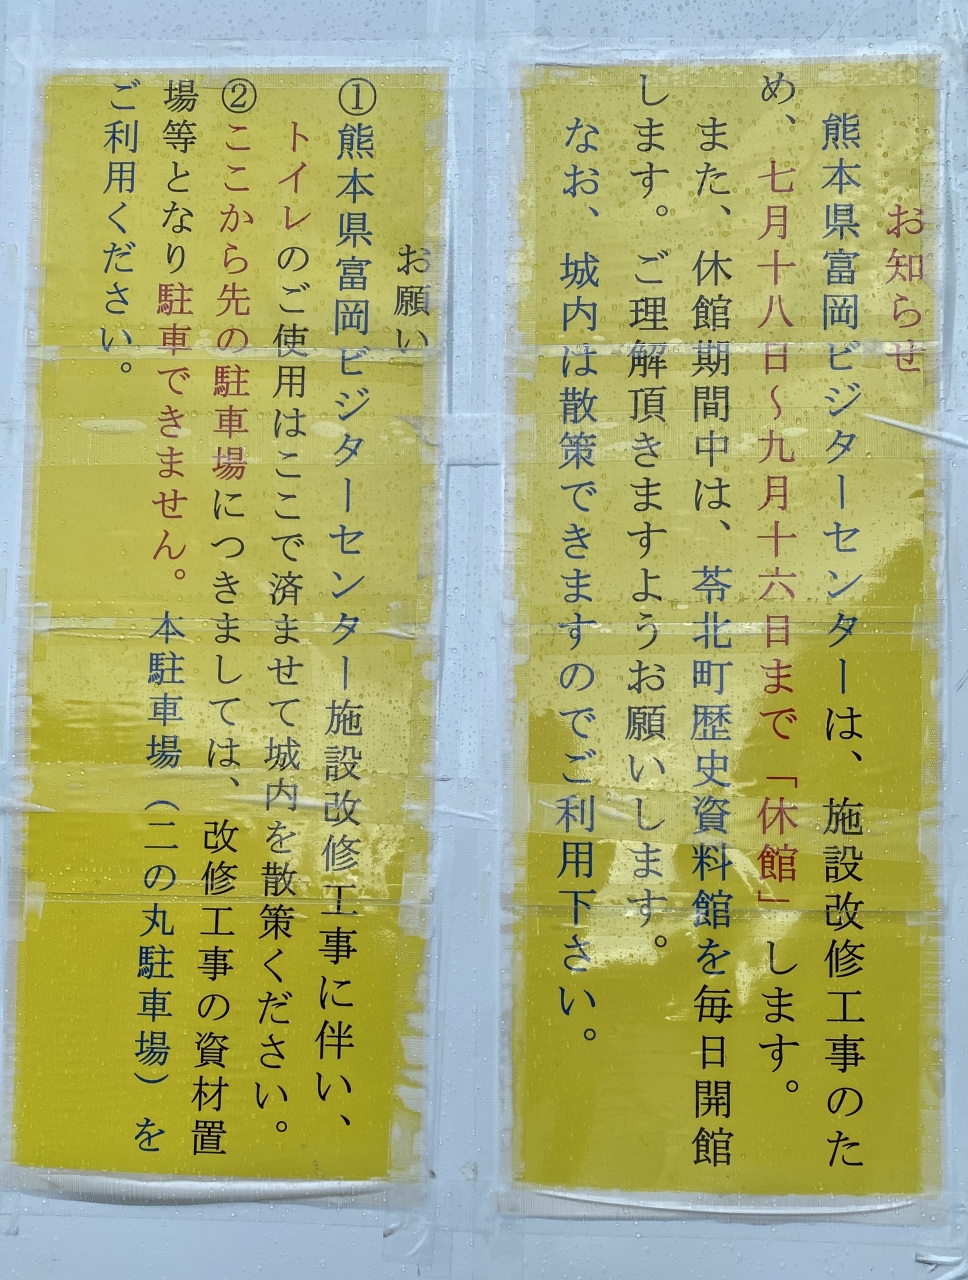 お知らせ
熊本県富岡ビジターセンターは、施設改修工事のた
め、七月十八日～九月十六日まで「休館」します。
また、休館期間中は、苓北町歴史資料館を毎日開館
します。ご理解頂きますようお願いします。
なお、城内は散策できますのでご利用下さい。
お願い
①熊本県富岡ビジターセンター施設改修工事に伴い、
トイレのご使用はここで済ませて城内を散策ください。
②ここから先の駐車場につきましては、改修工事の資材置
場等となり駐車できません。本駐車場（二の丸駐車場）を
ご利用ください。